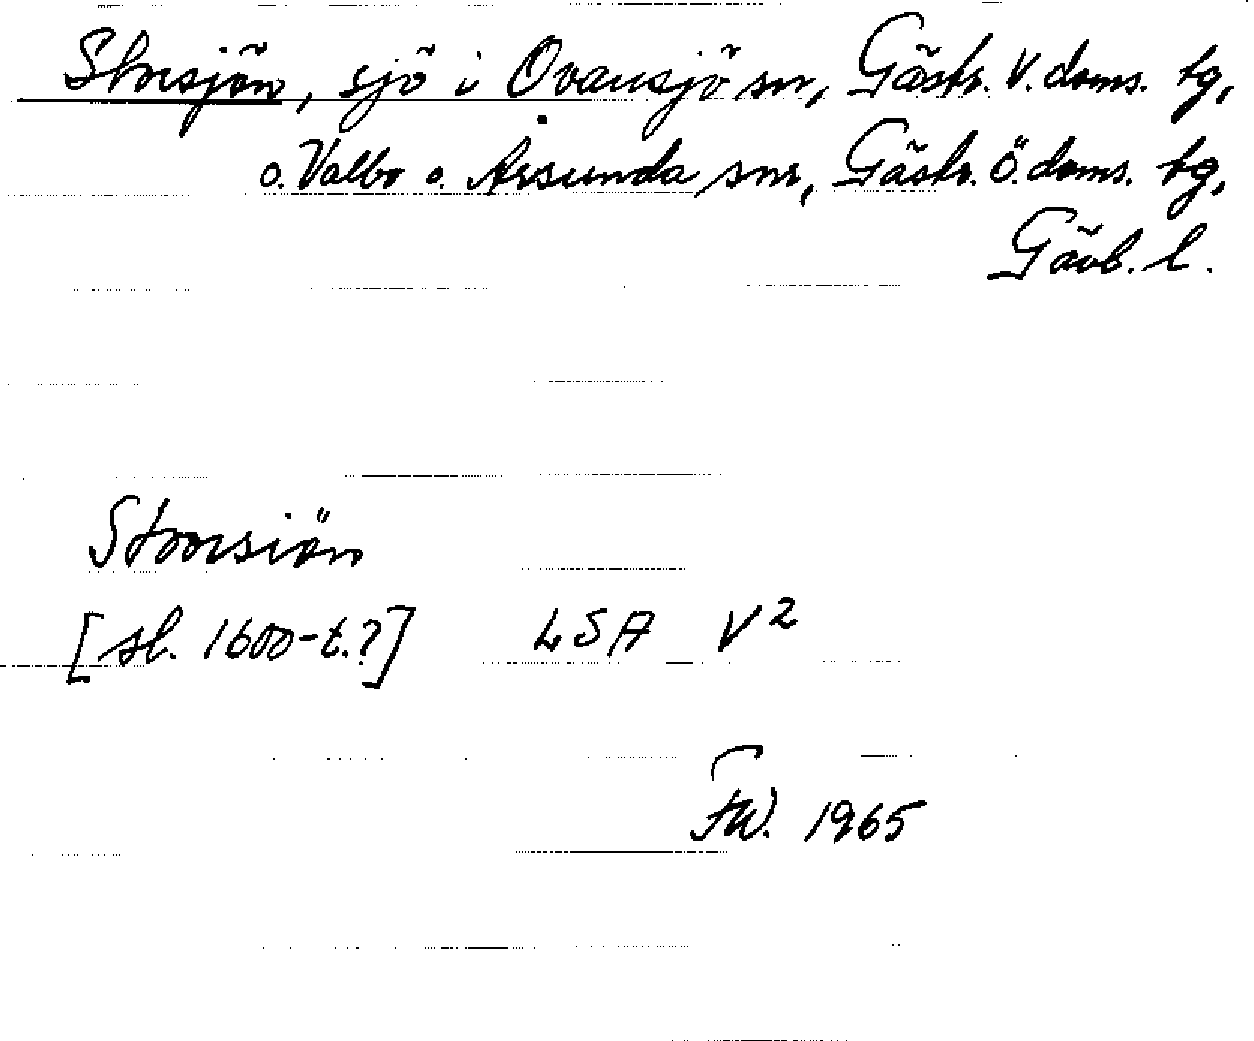 Storsjön, sjö i Ovansjö sn, Gästr. V. doms. tg,
o. Valbo o. Årsunda snr, Gästr. Ö. doms. tg,
Gävb. l.
Stoorsiön
[sl. 1600-t.?] LSA V²
FW. 1965